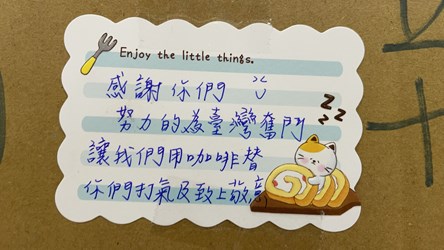 Enjoy the little things.
感謝你們
努力的為臺灣奮鬥
讓我們用咖啡替
你們打氣及致上敬意
zzz